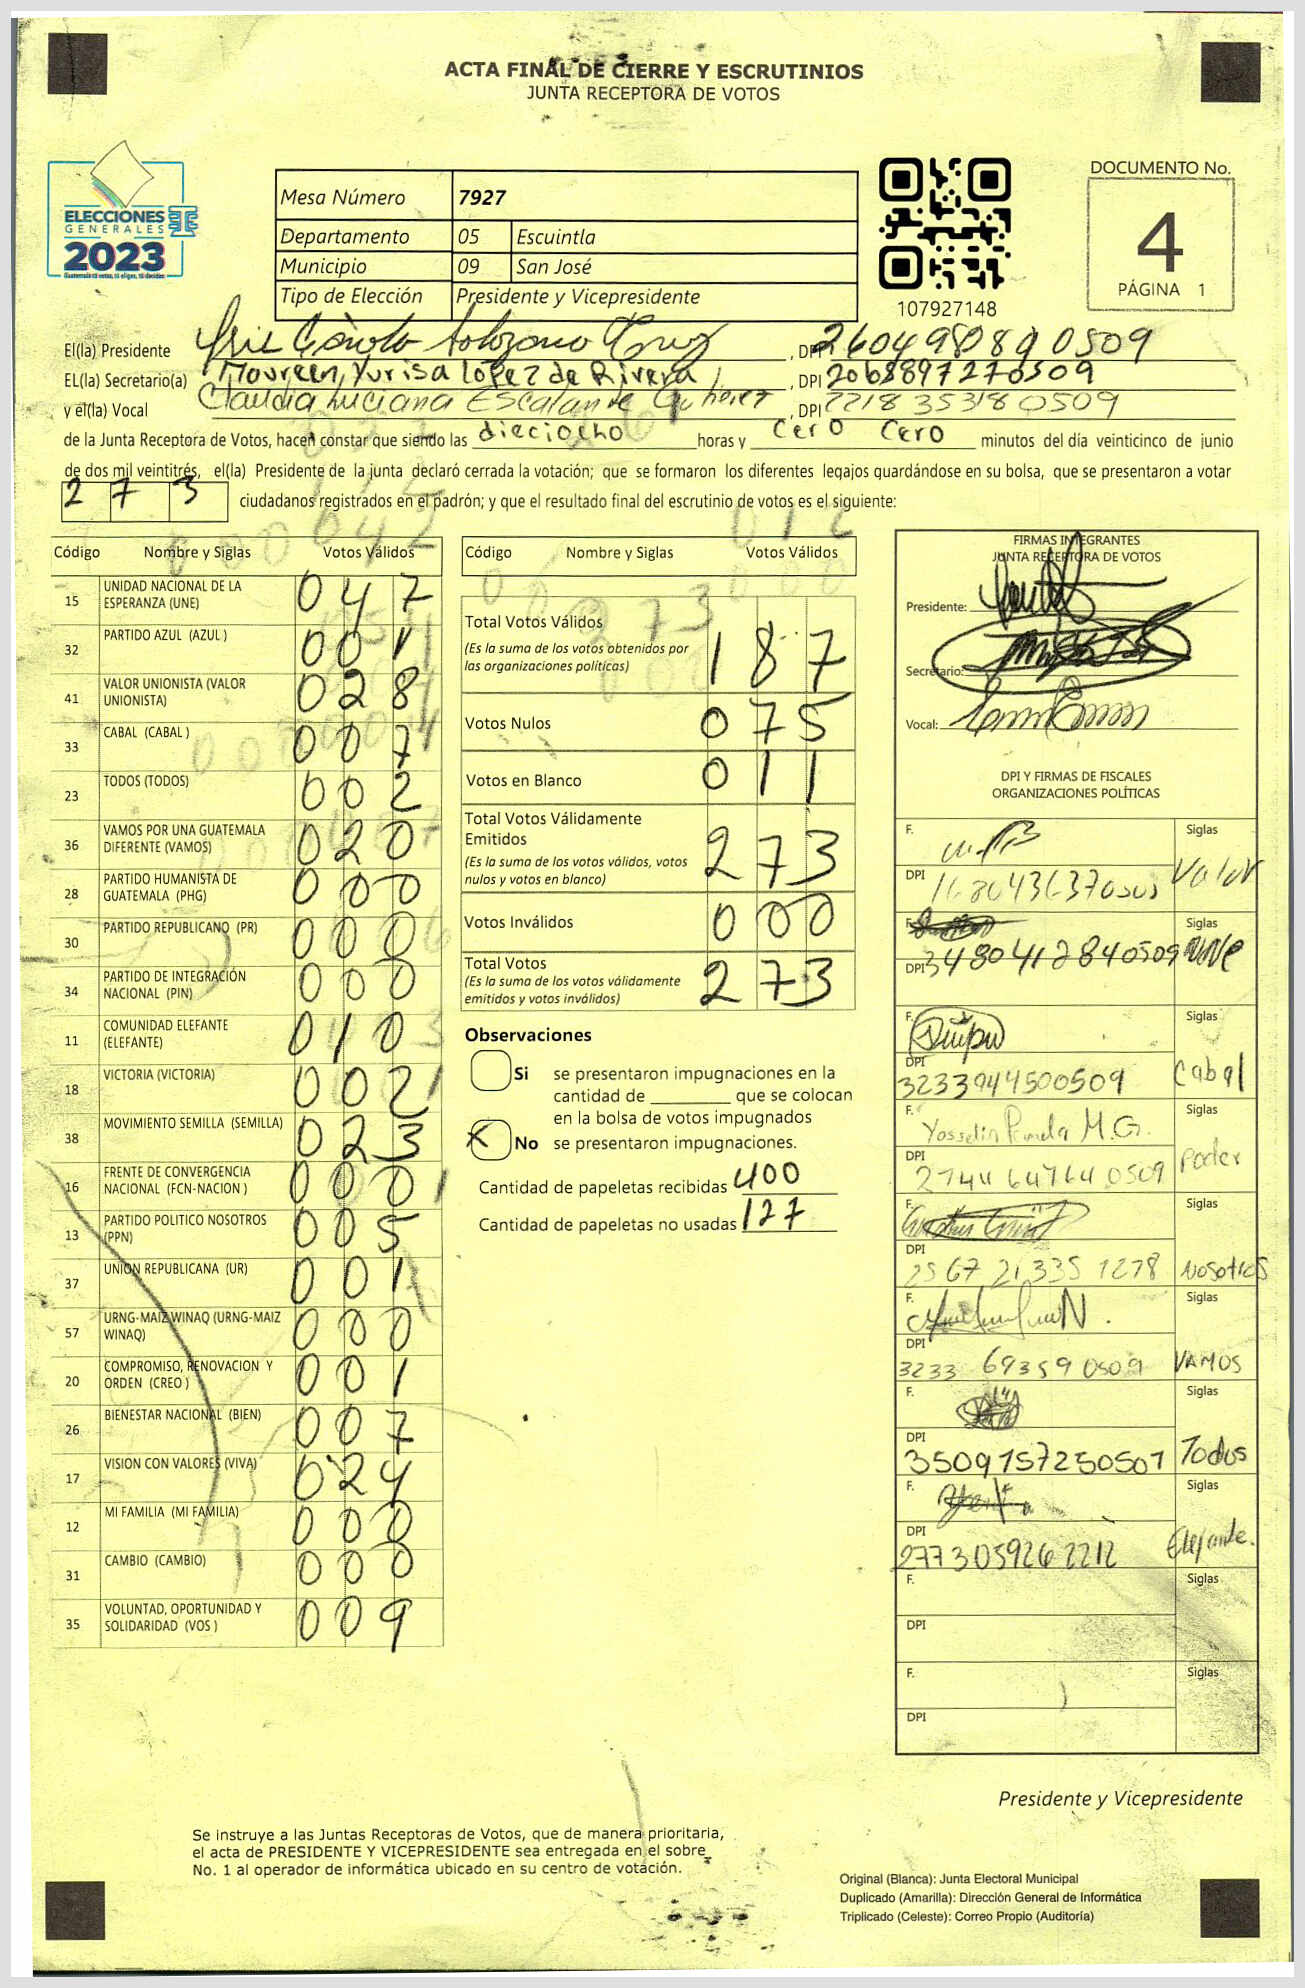 ACTA FINAL DE CIERRE Y ESCRUTINIOS
JUNTA RECEPTORA DE VOTOS
ELECCIONES
GENERALES
2023
Mesa Número 7927
Departamento 05 Escuintla
Municipio 09 San José
Tipo de Elección Presidente y Vicepresidente
107927148
DOCUMENTO No.
4
PÁGINA 1
El(la) Presidente Cruz , DPI 2604980890509
EL(la) Secretario(a) Maureen Yurisa López de Rivera , DPI 2068897270509
y el(la) Vocal Claudia Luciana Escalante , DPI 2218353180509
de la Junta Receptora de Votos, hacen constar que siendo las dieciocho horas y cero cero minutos del día veinticinco de junio
de dos mil veintitrés, el(la) Presidente de la junta declaró cerrada la votación; que se formaron los diferentes legajos guardándose en su bolsa, que se presentaron a votar
273 ciudadanos registrados en el padrón; y que el resultado final del escrutinio de votos es el siguiente:
Código Nombre y Siglas Votos Válidos
15 UNIDAD NACIONAL DE LA ESPERANZA (UNE) 047
32 PARTIDO AZUL (AZUL ) 001
41 VALOR UNIONISTA (VALOR UNIONISTA) 028
33 CABAL (CABAL ) 007
23 TODOS (TODOS) 002
36 VAMOS POR UNA GUATEMALA DIFERENTE (VAMOS) 020
28 PARTIDO HUMANISTA DE GUATEMALA (PHG) 000
30 PARTIDO REPUBLICANO (PR) 000
34 PARTIDO DE INTEGRACIÓN NACIONAL (PIN) 000
11 COMUNIDAD ELEFANTE (ELEFANTE) 010
18 VICTORIA (VICTORIA) 002
38 MOVIMIENTO SEMILLA (SEMILLA) 023
16 FRENTE DE CONVERGENCIA NACIONAL (FCN-NACION ) 000
13 PARTIDO POLITICO NOSOTROS (PPN) 005
37 UNION REPUBLICANA (UR) 001
57 URNG-MAIZ WINAQ (URNG-MAIZ WINAQ) 000
20 COMPROMISO, RENOVACION Y ORDEN (CREO ) 001
26 BIENESTAR NACIONAL (BIEN) 007
17 VISION CON VALORES (VIVA) 024
12 MI FAMILIA (MI FAMILIA) 000
31 CAMBIO (CAMBIO) 000
35 VOLUNTAD, OPORTUNIDAD Y SOLIDARIDAD (VOS ) 009
Código Nombre y Siglas Votos Válidos
Total Votos Válidos 187
(Es la suma de los votos obtenidos por
las organizaciones políticas)
Votos Nulos 075
Votos en Blanco 011
Total Votos Válidamente
Emitidos 273
(Es la suma de los votos válidos, votos
nulos y votos en blanco)
Votos Inválidos 000
Total Votos 273
(Es la suma de los votos válidamente
emitidos y votos inválidos)
Observaciones
Si se presentaron impugnaciones en la
cantidad de ________ que se colocan
en la bolsa de votos impugnados
X No se presentaron impugnaciones.
Cantidad de papeletas recibidas 400
Cantidad de papeletas no usadas 127
FIRMAS INTEGRANTES
JUNTA RECEPTORA DE VOTOS
Presidente:
Secretario:
Vocal:
DPI Y FIRMAS DE FISCALES
ORGANIZACIONES POLÍTICAS
F. Siglas
DPI Valor
F. Siglas
DPI 3480412840509 UNE
F. Siglas
DPI 3233944500509 Cabal
F. Yosselin M.G. Siglas
DPI 2744647640509 Poder
F. Siglas
DPI 2567213351228 Nosotros
F. Siglas
DPI 3233693590509 VAMOS
F. Siglas
DPI 3509757250501 Todos
F. Siglas
DPI 2773059262212 Elefante.
F. Siglas
DPI
F. Siglas
DPI
Presidente y Vicepresidente
Se instruye a las Juntas Receptoras de Votos, que de manera prioritaria,
el acta de PRESIDENTE Y VICEPRESIDENTE sea entregada en el sobre
No. 1 al operador de informática ubicado en su centro de votación.
Original (Blanca): Junta Electoral Municipal
Duplicado (Amarilla): Dirección General de Informática
Triplicado (Celeste): Correo Propio (Auditoría)